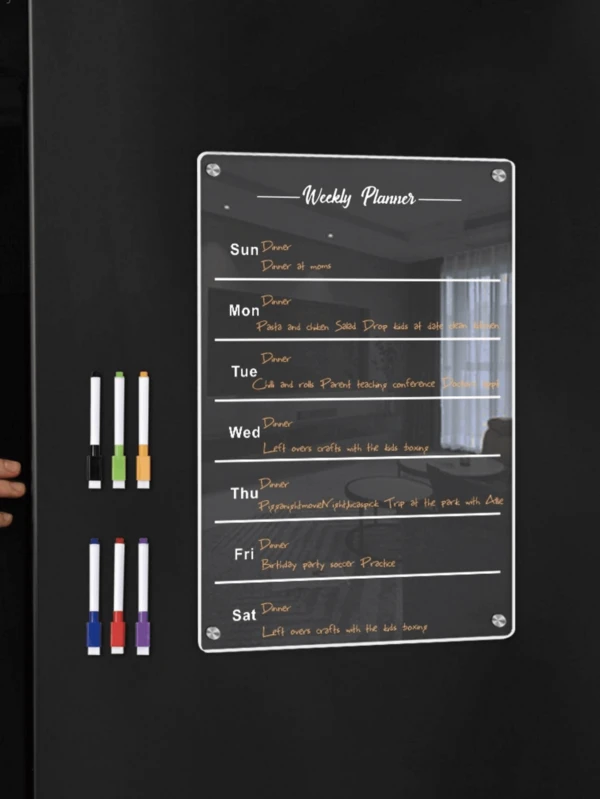 Weekly Planner
Sun Dinner
Dinner at moms
Mon Dinner
Pasta and chiken Salad Drop kids at date clean kitchen
Tue Dinner
Chili and rolls Parent teaching conference Doctors appt
Wed Dinner
Left overs crafts with the kids boxing
Thu Dinner
Trip at the park with
Fri Dinner
Birthday party soccer Practice
Sat Dinner
Left overs crafts with the kids boxing